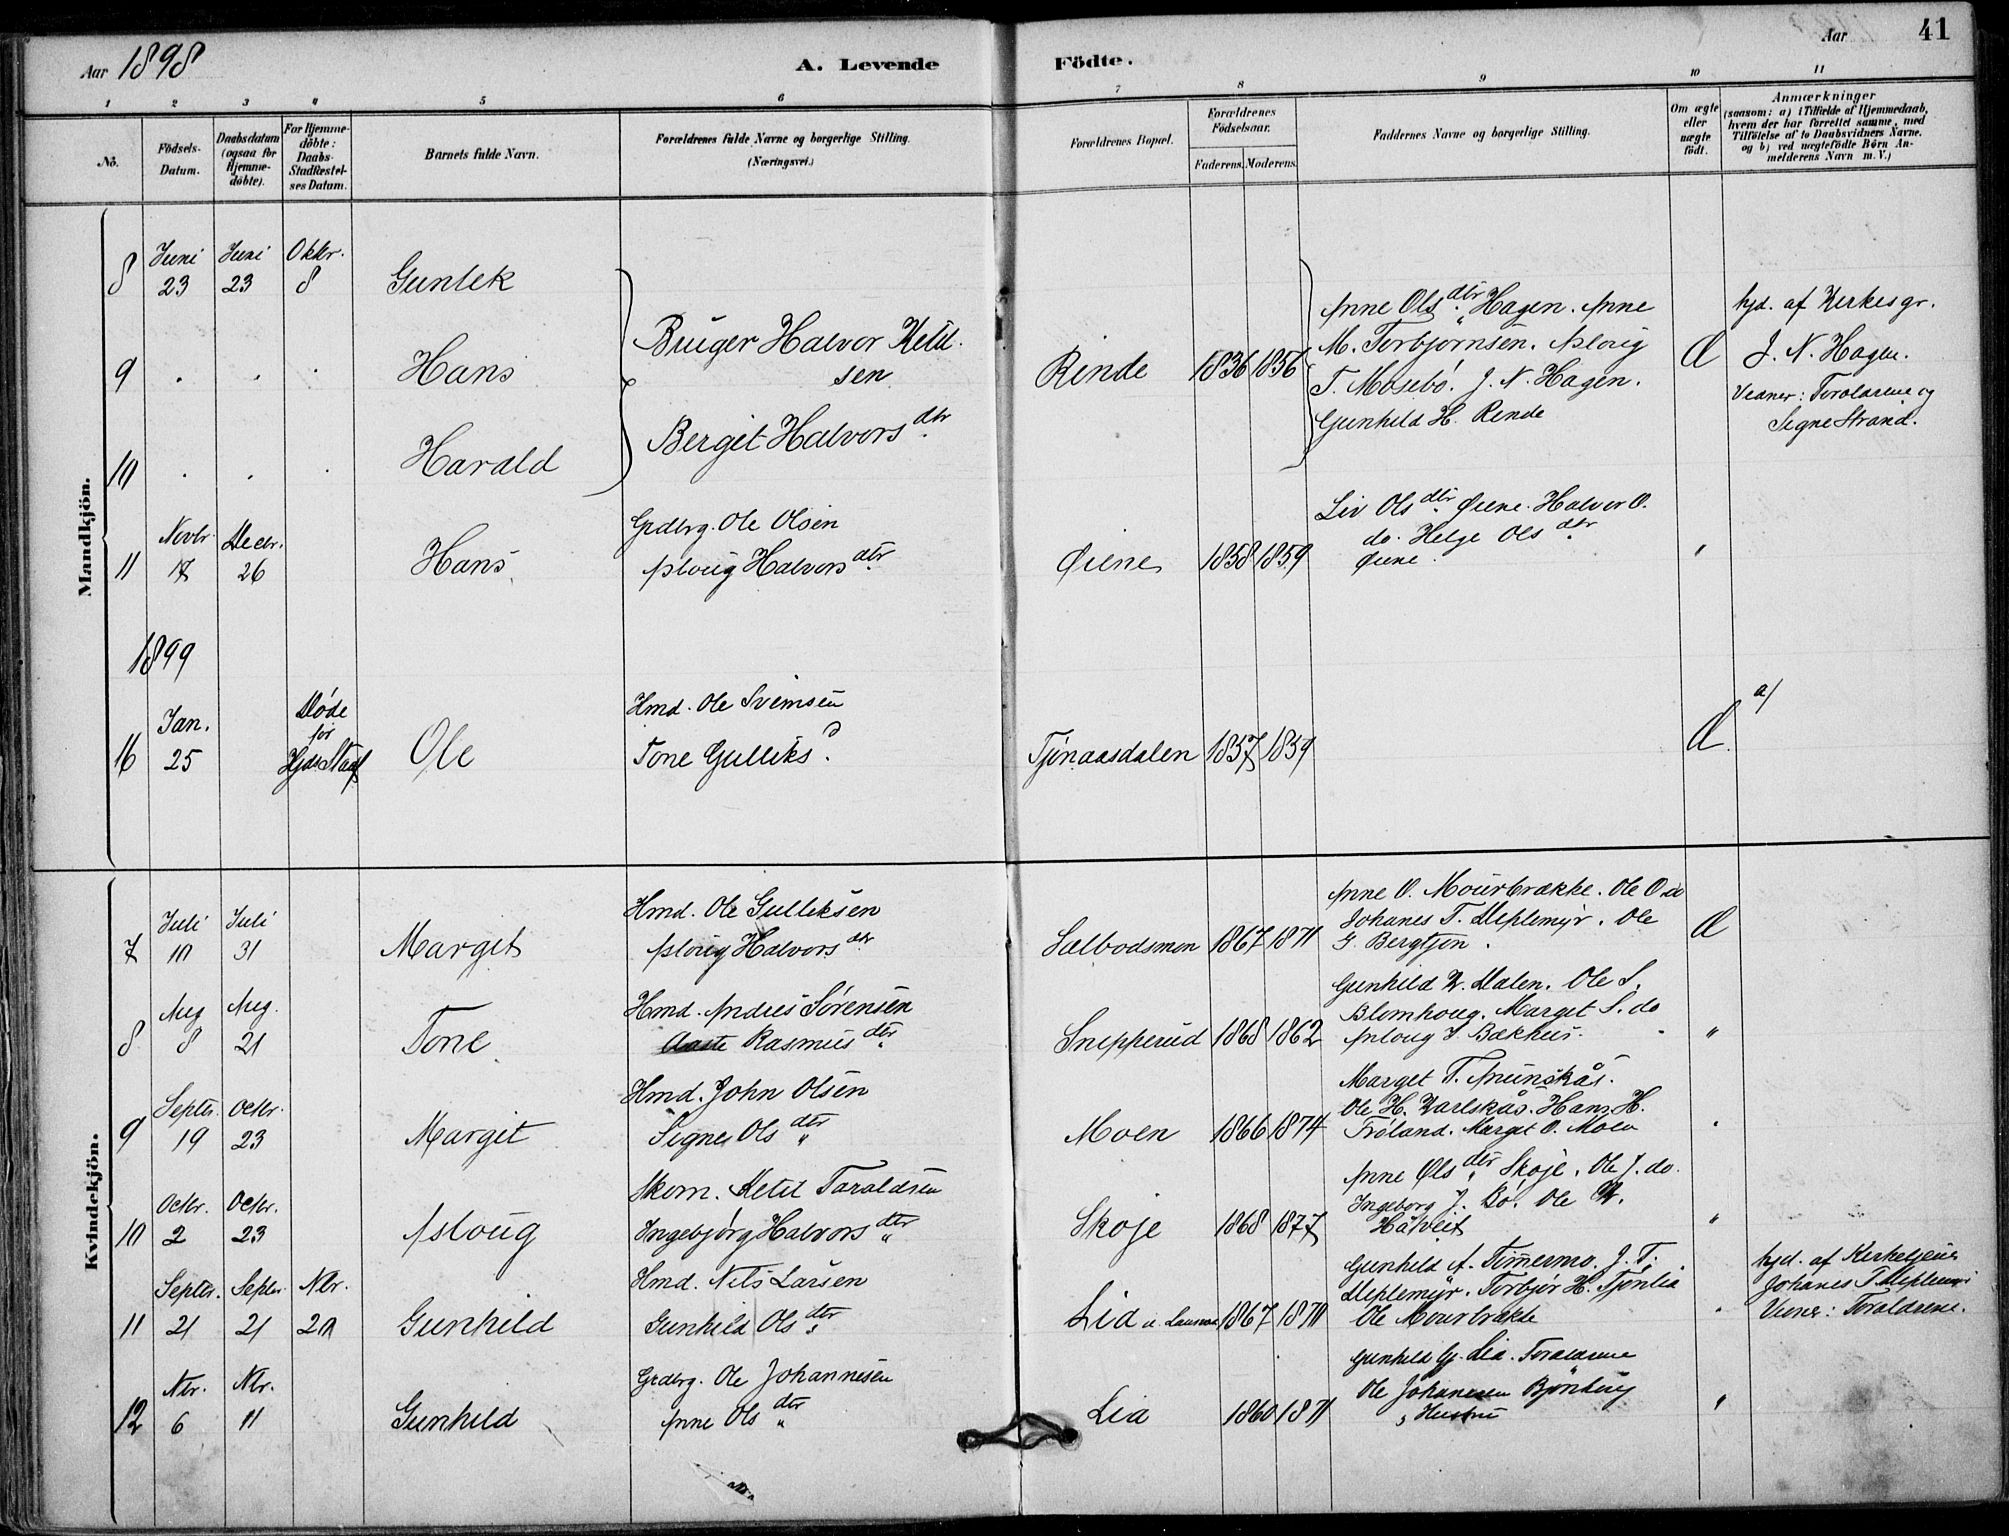 Aar 1898
A. Levende
Födte.
Aar
41
1 2 3 4 5 6 7 8 9 10 11
Nö.
Födsels-Datum.
Daabsdatum (ogsaa for Hjemme-döbte).
For Hjemme-döbte: Daabs-Stadfæstel-ses Datum.
Barnets fulde Navn.
Forældrenes fulde Navne og borgerlige Stilling.
(Næringsvei.)
Forældrenes Bopæl.
Forældrenes Födselsaar.
Faderens. Moderens.
Faddernes Navne og borgerlige Stilling.
Om ægte eller uægte födt.
Anmærkninger
(saasom: a) i Tilfælde af Hjemmedaab,
hvem der har forrettet samme, med
Tilföielse af to Daabsvidners Navne.
og b) ved uægtefödte Börn An-
melderens Navn m.V.)
Mandkjön.
8 Juni 23 Juni 23 Oktbr. 8 Gunlek
9 . . . Hans
10 . . . Harald
Bruger Halvor Ketil-
sen
Berget Halvors dtr
Rinde 1836 1856
Anne Ols dtr Hagen. Anne
M. Torbjørnsen. Asloug
T. Mosebø. J. N. Hagen.
Gunhild H. Rinde
Æ
hjd. af Kirkesgr.
J. N. Hagen.
Vidner: Forældrene og
Signe Strand.
11 Novbr. 17 Decbr. 26 Hans
Grdbrg. Ole Olsen
Asloug Halvors dtr
Øiene 1858 1859
Liv Ols dtr Øiene. Halvor O.
do. Helge Ols dtr
Øiene.
1899
16 Jan. 25 Døde for Hjds Stadf Ole
Hmd. Ole Svensen
Tone Gulliks d.
Tjønaasdalen 1857 1859
Æ.
a)
Kvindekjön.
7 Juli 10 Juli 31 Marget
Hmd. Ole Gulleksen
Asloug Halvors dtr
Sælbodsmon 1867 1871
Anne O. Mourbrække. Ole O do
Johanes T. Meplemyr. Ole
G. Bergtjøn.
Æ
8 Aug 8 Aug. 21 Tone
Hmd. Andres Sørensen
Aaste Rasmus dtr
Snepperud 1868 1862
Gunhild K. Dalen. Ole S.
Blomhoug. Marget S. do
Asloug J. Bækhus.
"
9 Septbr. 19 Octbr. 23 Margit
Hmd. John Olsen
Signe Ols dtr
Moen 1866 1874
Marget T. Aunskås.
Ole H. Karlskås. Hans H.
Trøland. Marget O. Moen
10 Octbr. 2 Octbr. 23 Asloug
Skom. Ketil Taraldsen
Ingebjørg Halvors dtr
Skoje 1868 1877
Anne Ols dtr Skoje. Ole J. do.
Ingeborg J. Bø. Ole K.
Håtveit
"
11 Septbr. 21 Septbr 21 Nbr. 20 Gunhild
Hmd. Nils Larsen
Gunhild Ols dtr
Lia 1867 1870
Gunhild A. Timermo. J. T.
Meplemyr. Torbjør H. Tjønlia
Ole Mourbrække
hjd. af Kirketjener
Johanes T Meplemyr
Vidner: Forældrene.
12 Nbr. 6 Nbr. 11 Gunhild
Grdbrg. Ole Johannesen
Anne Ols dtr
Lia 1860 1871
Gunhild G. Lia. Forældrene
Ole Johannesen
Hustru
"